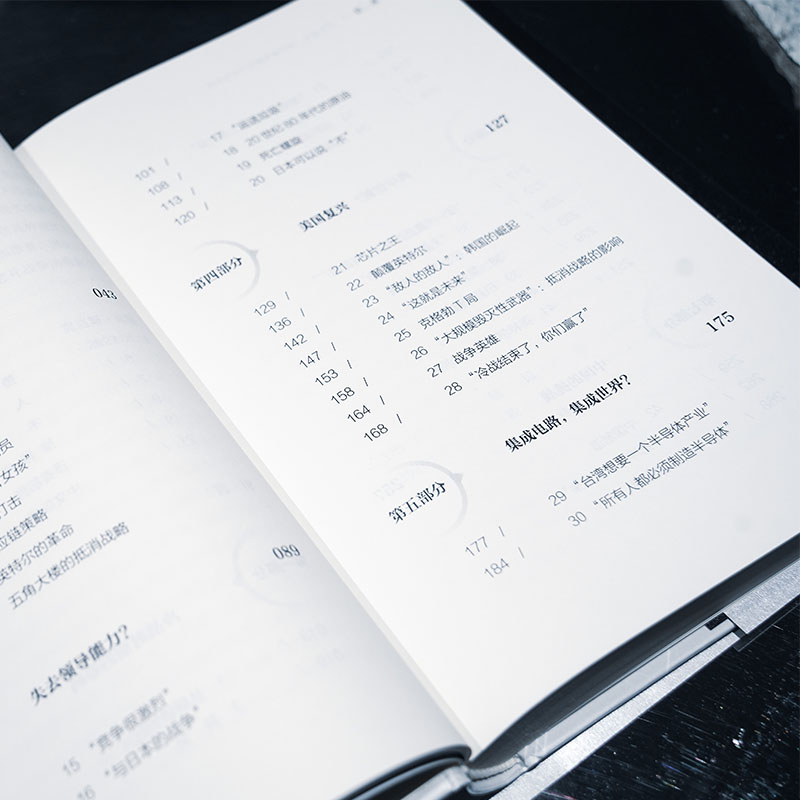 043
员
女孩”
打击
应链策略
英特尔的革命
五角大楼的抵消战略
089
失去领导能力？
15 “竞争很激烈”
16 “与日本的战争”
101 / 17
108 / 18 20世纪80年代的原油
113 / 19 死亡螺旋
120 / 20 日本可以说“不”
127
第四部分 美国复兴
129 / 21 芯片之王
136 / 22 颠覆英特尔
142 / 23 “敌人的敌人”：韩国的崛起
147 / 24 “这就是未来”
153 / 25 克格勃T局
158 / 26 “大规模毁灭性武器”：抵消战略的影响
164 / 27 战争英雄
168 / 28 “冷战结束了，你们赢了”
175
第五部分 集成电路，集成世界？
177 / 29 “台湾想要一个半导体产业”
184 / 30 “所有人都必须制造半导体”